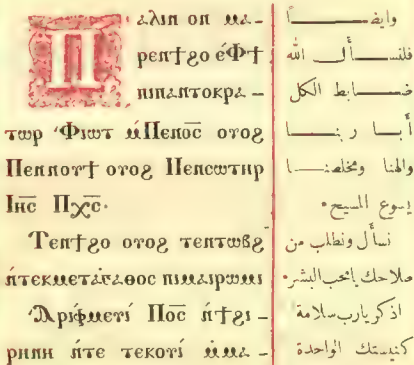 Ⲡⲁⲗⲓⲛ ⲟⲛ ⲙⲁ-
ⲣⲉⲛϯϩⲟ ⲉ̀Ⲫϯ
ⲡⲓⲡⲁⲛⲧⲟⲕⲣⲁ-
ⲧⲱⲣ Ⲫⲓⲱⲧ ⲙ̀Ⲡⲉⲛⲟ̅ⲥ̅ ⲟⲩⲟϩ
Ⲡⲉⲛⲛⲟⲩϯ ⲟⲩⲟϩ Ⲡⲉⲛⲥⲱⲧⲏⲣ
Ⲓⲏ̅ⲥ̅ Ⲡⲭ̅ⲥ̅.
Ⲧⲉⲛϯϩⲟ ⲟⲩⲟϩ ⲧⲉⲛⲧⲱⲃϩ
ⲛ̀ⲧⲉⲕⲙⲉⲧⲁ̀ⲅⲁⲑⲟⲥ ⲡⲓⲙⲁⲓⲣⲱⲙⲓ
Ⲁ̀ⲣⲓⲫ̀ⲙⲉⲩⲓ̀ Ⲡⲟ̅ⲥ̅ ⲛ̀ϯϩⲓ-
ⲣⲏⲛⲏ ⲛ̀ⲧⲉ ⲧⲉⲕⲟⲩⲓ̀ ⲙ̀ⲙⲁ-
وايضــــــاً
فلنســـأل الله
ضـــابط الكل
أبــا ربنـــا
والهنا ومخلصنــا
يسوع المسيح•
نسأل ونطلب من
صلاحك يامحب البشر•
اذكر يارب سلامة
كنيستك الواحدة